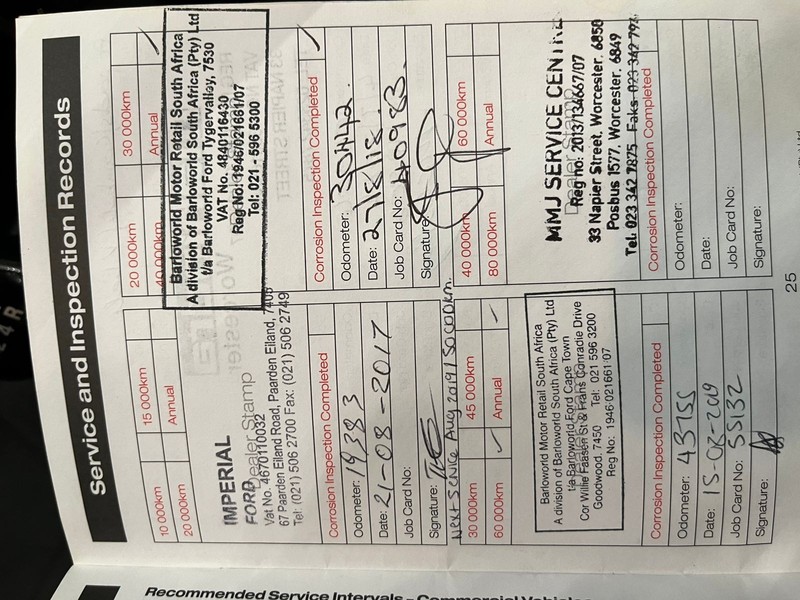 Service and Inspection Records
10 000km 15 000km
20 000km Annual
IMPERIAL
FORD
Dealer Stamp
Vat No. 4670110032
67 Paarden Eiland Road, Paarden Eiland, 7405
Tel: (021) 506 2700 Fax: (021) 506 2749
Corrosion Inspection Completed
Odometer: 19383
Date: 21-08-2017
Job Card No:
Signature:
20 000km 30 000km
40 000km Annual
Barloworld Motor Retail South Africa
A division of Barloworld South Africa (Pty) Ltd
t/a Barloworld Ford Tygervalley, 7530
VAT No. 4840116430
Reg No: 1946/021661/07
Tel: 021 - 596 5300
Corrosion Inspection Completed
Odometer: 30442
Date: 27/8/18
Job Card No: 40983
Signature:
Next Service Aug 2019/ 50000km.
30 000km 45 000km
60 000km Annual
Barloworld Motor Retail South Africa
A division of Barloworld South Africa (Pty) Ltd
t/a Barloworld Ford Cape Town
Cor Willie Faasen St & Frans Conradie Drive
Goodwood. 7450 Tel: 021 596 3200
Reg No: 1946·021661·07
Corrosion Inspection Completed
Odometer: 43755
Date: 15-08-2019
Job Card No: 55132
Signature:
40 000km 60 000km
80 000km Annual
MMJ SERVICE CENTRE
Dealer Stamp
Reg no: 2013/134667/07
33 Napier Street, Worcester. 6850
Posbus 1577, Worcester. 6849
Tel: 023 342 7875 Faks: 023 342 797
Corrosion Inspection Completed
Odometer:
Date:
Job Card No:
Signature:
25
Recommended Service Intervals - Commercial Vehicles